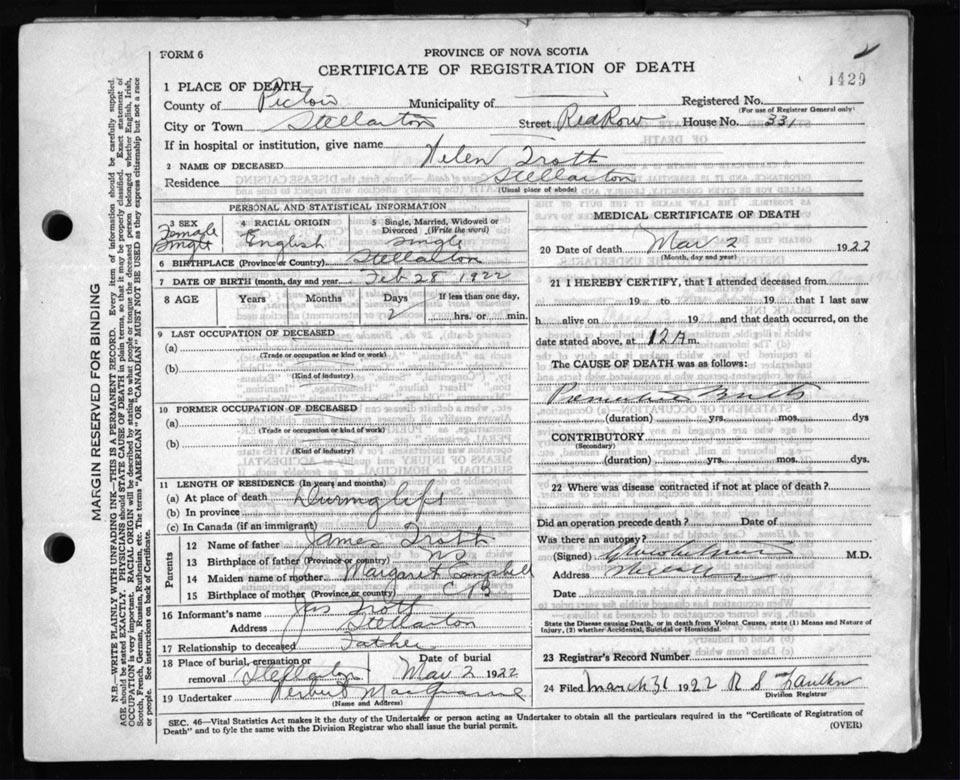 FORM 6
PROVINCE OF NOVA SCOTIA
CERTIFICATE OF REGISTRATION OF DEATH
1429
1 PLACE OF DEATH
County of Pictou Municipality of Registered No.
(For use of Registrar General only)
City or Town Stellarton Street Red Row House No. 331
If in hospital or institution, give name
2 NAME OF DECEASED Helen Trott
Residence Stellarton
(Usual place of abode)
PERSONAL AND STATISTICAL INFORMATION
3 SEX
Female
Single
4 RACIAL ORIGIN
English
5 Single, Married, Widowed or Divorced (Write the word)
single
6 BIRTHPLACE (Province or Country) Stellarton
7 DATE OF BIRTH (month, day and year) Feb 28 1922
8 AGE Years Months Days If less than one day,
2 hrs. or min.
9 LAST OCCUPATION OF DECEASED
(a)
(Trade or occupation or kind of work)
(b)
(Kind of industry)
10 FORMER OCCUPATION OF DECEASED
(a)
(Trade or occupation or kind of work)
(b)
(Kind of industry)
11 LENGTH OF RESIDENCE (In years and months)
(a) At place of death During life
(b) In province
(c) In Canada (if an immigrant)
Parents
12 Name of father James Trott
13 Birthplace of father (Province or country) NS
14 Maiden name of mother Margaret Campbell
15 Birthplace of mother (Province or country) C B
16 Informant's name Jas Trott
Address Stellarton
17 Relationship to deceased Father
18 Place of burial, cremation or removal Stellarton Date of burial Mar 2 1922
19 Undertaker
(Name and Address)
MEDICAL CERTIFICATE OF DEATH
20 Date of death Mar 2 1922
(Month, day and year)
21 I HEREBY CERTIFY, that I attended deceased from
19 to 19 that I last saw
h alive on 19 and that death occurred, on
date stated above, at 12 A m.
The CAUSE OF DEATH was as follows:
Premature Birth
(duration) yrs. mos. dys
CONTRIBUTORY
(Secondary)
(duration) yrs. mos. dys
22 Where was disease contracted if not at place of death?
Did an operation precede death? Date of
Was there an autopsy?
(Signed) M.D.
Address
Date
State the Disease causing Death, or in death from Violent Causes, state (1) Means and Nature of
Injury, (2) whether Accidental, Suicidal or Homicidal.
23 Registrar's Record Number
24 Filed March 31 1922 R S
Division Registrar
SEC. 46—Vital Statistics Act makes it the duty of the Undertaker or person acting as Undertaker to obtain all the particulars required in the "Certificate of Registration of
Death" and to fyle the same with the Division Registrar who shall issue the burial permit.
(OVER)
MARGIN RESERVED FOR BINDING
N.B.—WRITE PLAINLY WITH UNFADING INK—THIS IS A PERMANENT RECORD. Every item of information should be carefully supplied.
AGE should be stated EXACTLY. PHYSICIANS should STATE CAUSE OF DEATH in plain terms, so that it may be properly classified. Exact statement of
OCCUPATION is very important. RACIAL ORIGIN will be described by stating to what people or tongue the deceased person belonged whether English, Irish,
Scotch, French, German, Russian, Ruthenian, etc. The terms "AMERICAN" OR "CANADIAN" MUST NOT BE USED as they express citizenship but not a race
or people. See instructions on back of Certificate.